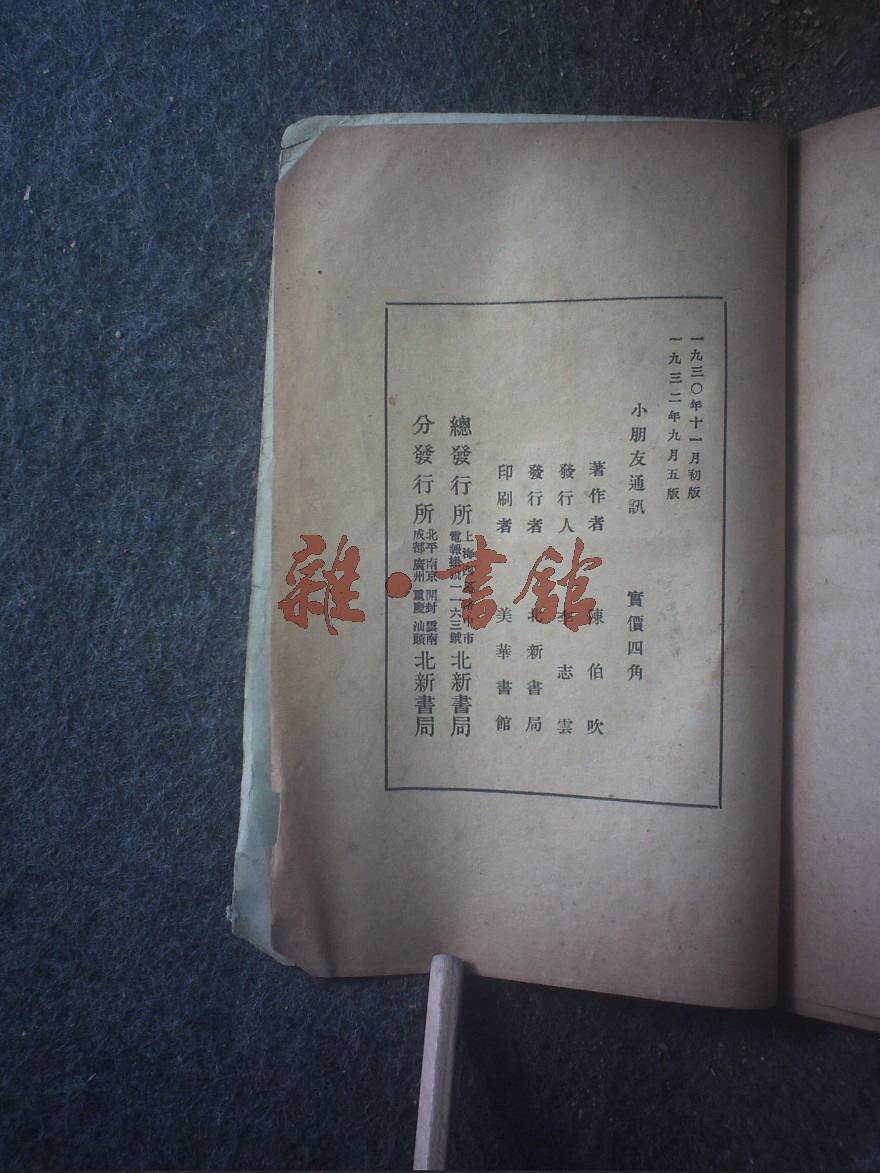 一九三〇年十一月初版
一九三二年九月五版
小朋友通訊 實價四角
著作者 陳伯吹
發行人 李志雲
發行者 北新書局
印刷者 美華書館
總發行所 上海四 市 電報掛號一一六三號 北新書局
分發行所 北平 南京 開封 雲南 成都 廣州 重慶 汕頭 北新書局
雜·書館